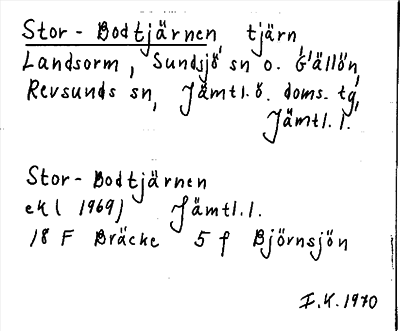 Stor-Bodtjärnen tjärn
Landsorm, Sundsjö sn o. Gällön,
Revsunds sn, Jämtl.ö. doms. tg,
Jämtl.l.
Stor-Bodtjärnen
ekl 1969) Jämtl.l.
18 F Bräcke 5 f Björnsjön
I.K.1970